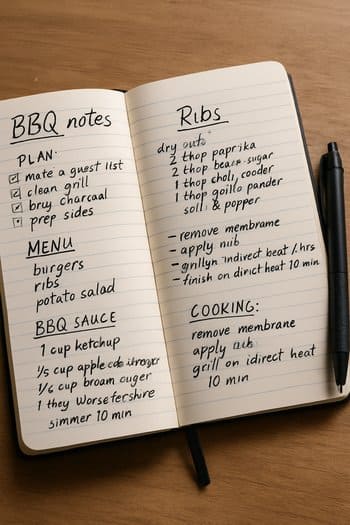 BBQ notes
PLAN:
mate a guest list
clean grill
bruy charcoal
prep sides
MENU
burgers
ribs
potato salad
BBQ SAUCE
1 cup ketchup
cup apple
cup broam ouger
1 they Worsefershire
simmer 10 min
Ribs
dry
2 thop paprika
2 thop sugar
1 thop
1 thop goillo pander
& popper
– remove membrane
– apply
– grillyn indirect beat
– finish on heat 10 min
COOKING:
remove membrane
apply
grill on idirect heat
10 min